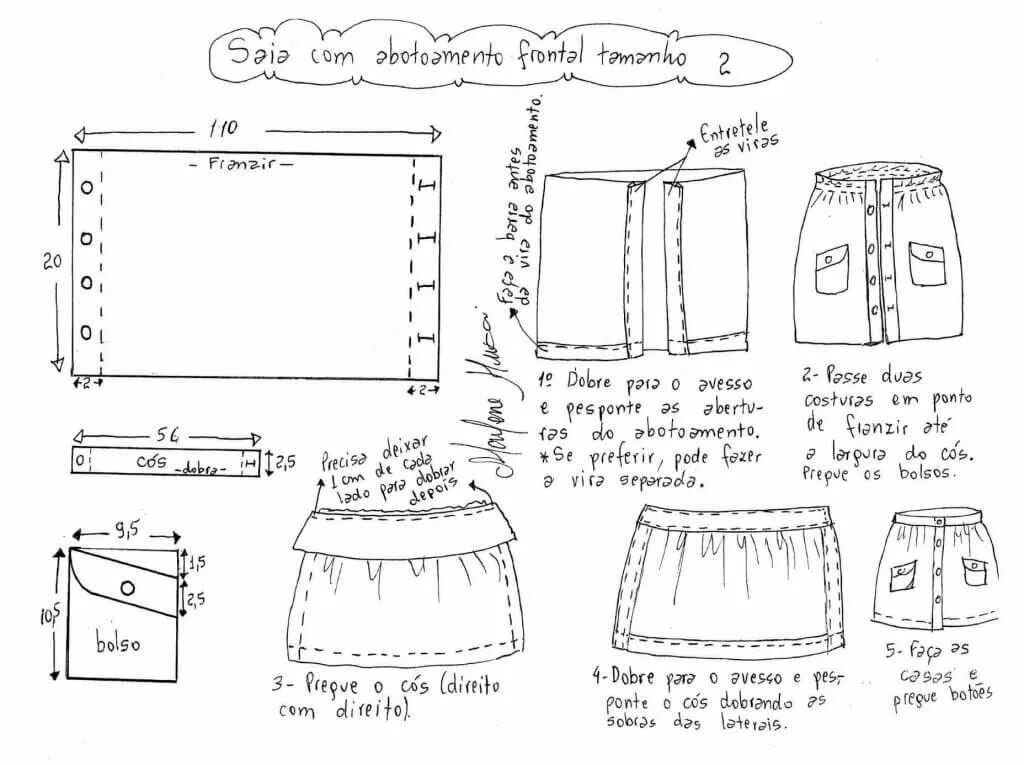 Saia com abotoamento frontal tamanho 2
110
- Franzir -
20
2
2
56
cós -dobra-
2,5
9,5
1,5
2,5
10,5
bolso
Faça a barra antes
da vira do abotoamento.
Entretele
as viras
1º Dobre para o avesso
e pesponte as abertu-
ras do abotoamento.
*Se preferir, pode fazer
a vira separada.
2- Passe duas
costuras em ponto
de franzir até
a largura do cós.
Pregue os bolsos.
Precisa deixar
1 cm de cada
lado para dobrar
depois
3- Pregue o cós (direito
com direito).
4- Dobre para o avesso e pes-
ponte o cós dobrando as
sobras das laterais.
5- Faça as
casas e
pregue botões